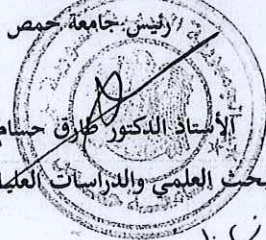 رئيس جامعة حمص
الأستاذ الدكتور طارق حسام
البحث العلمي والدراسات العليا